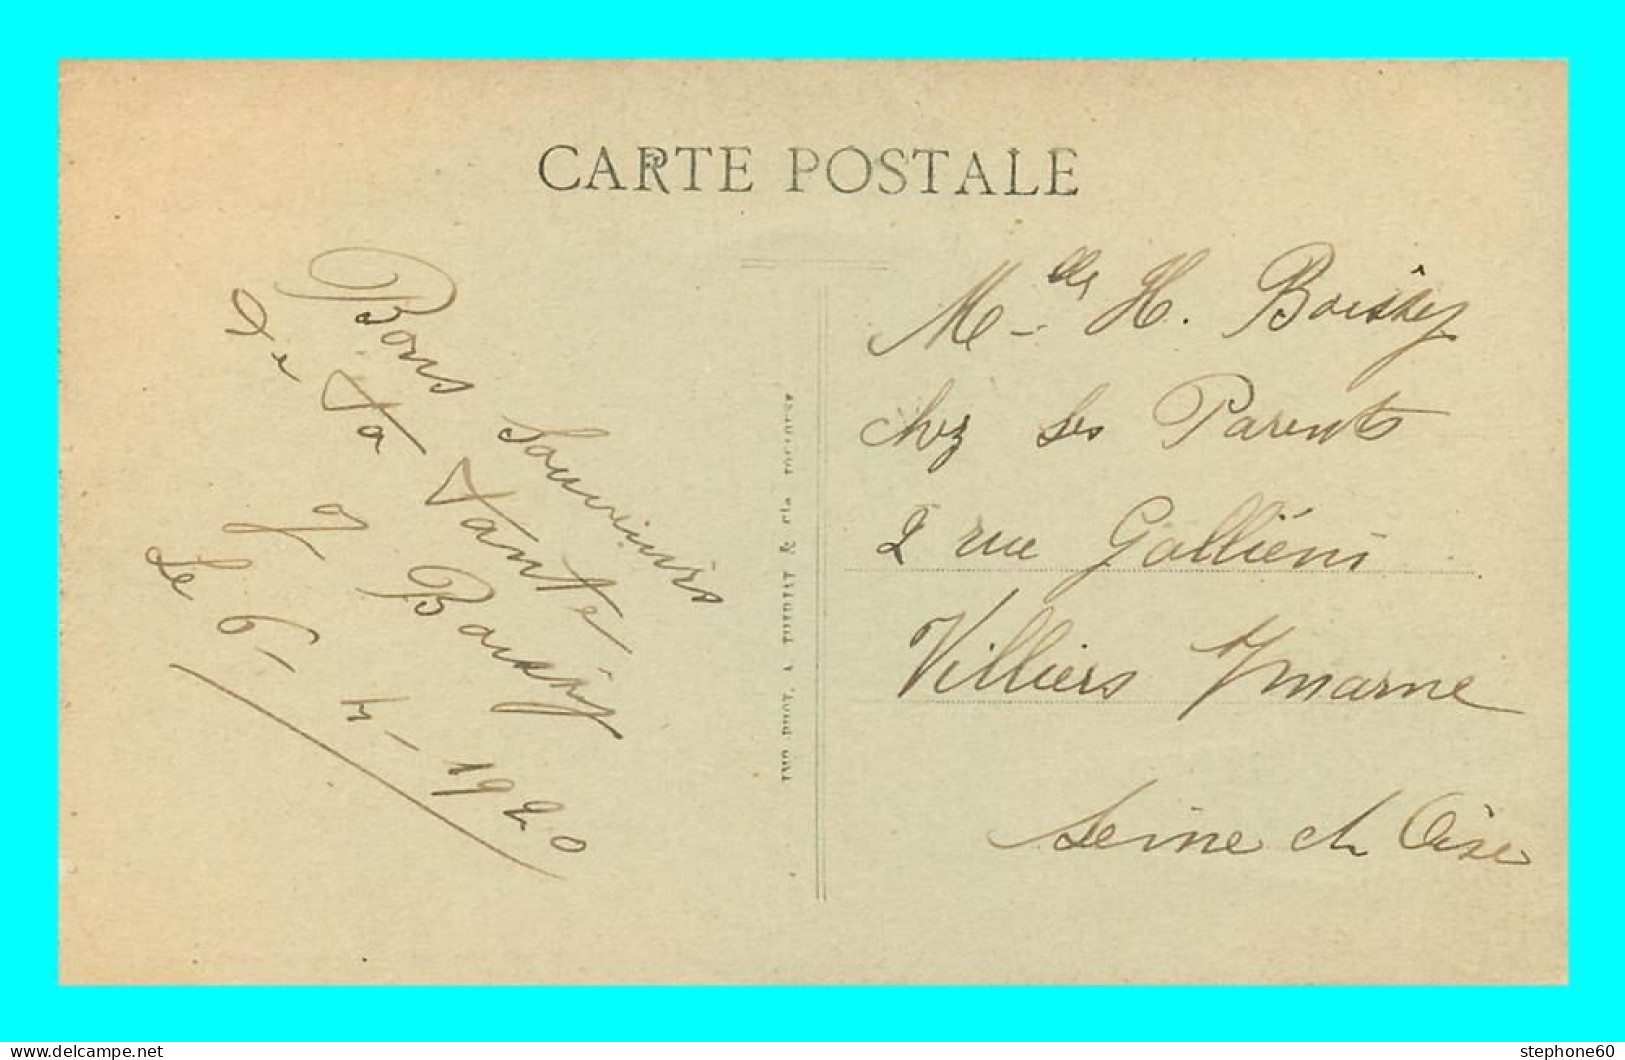 CARTE POSTALE
Bons Souvenirs
de ta tante
J Boissy
Le 6-4-1920
IMP. PHOT. A. THIRIAT & Cie TOULOUSE
Melle H. Boissy
chez ses Parents
2 rue Galliéni
Villiers s/marne
Seine et Oise
www.delcampe.net
stephone60